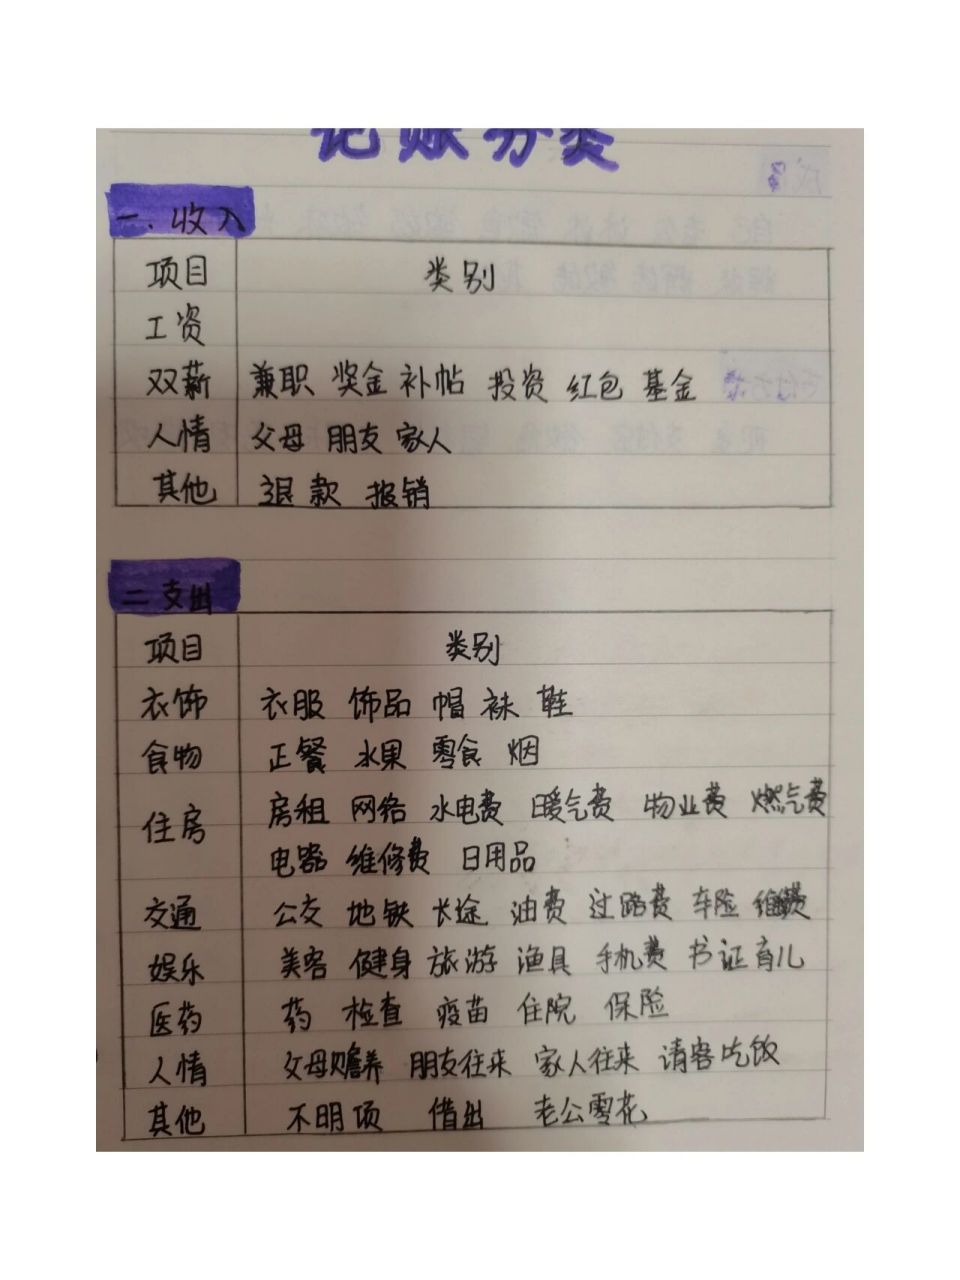 记账分类
一.收入
项目 类别
工资
双薪 兼职 奖金 补帖 投资 红包 基金
人情 父母 朋友 家人
其他 退款 报销
二支出
项目 类别
衣饰 衣服 饰品 帽 袜 鞋
食物 正餐 水果 零食 烟
住房 房租 网络 水电费 暖气费 物业费 燃气费
电器 维修费 日用品
交通 公交 地铁 长途 油费 过路费 车险
娱乐 美容 健身 旅游 渔具 手机费 书证育儿
医药 药 检查 疫苗 住院 保险
人情 父母赡养 朋友往来 家人往来 请客吃饭
其他 不明项 借出 老公零花